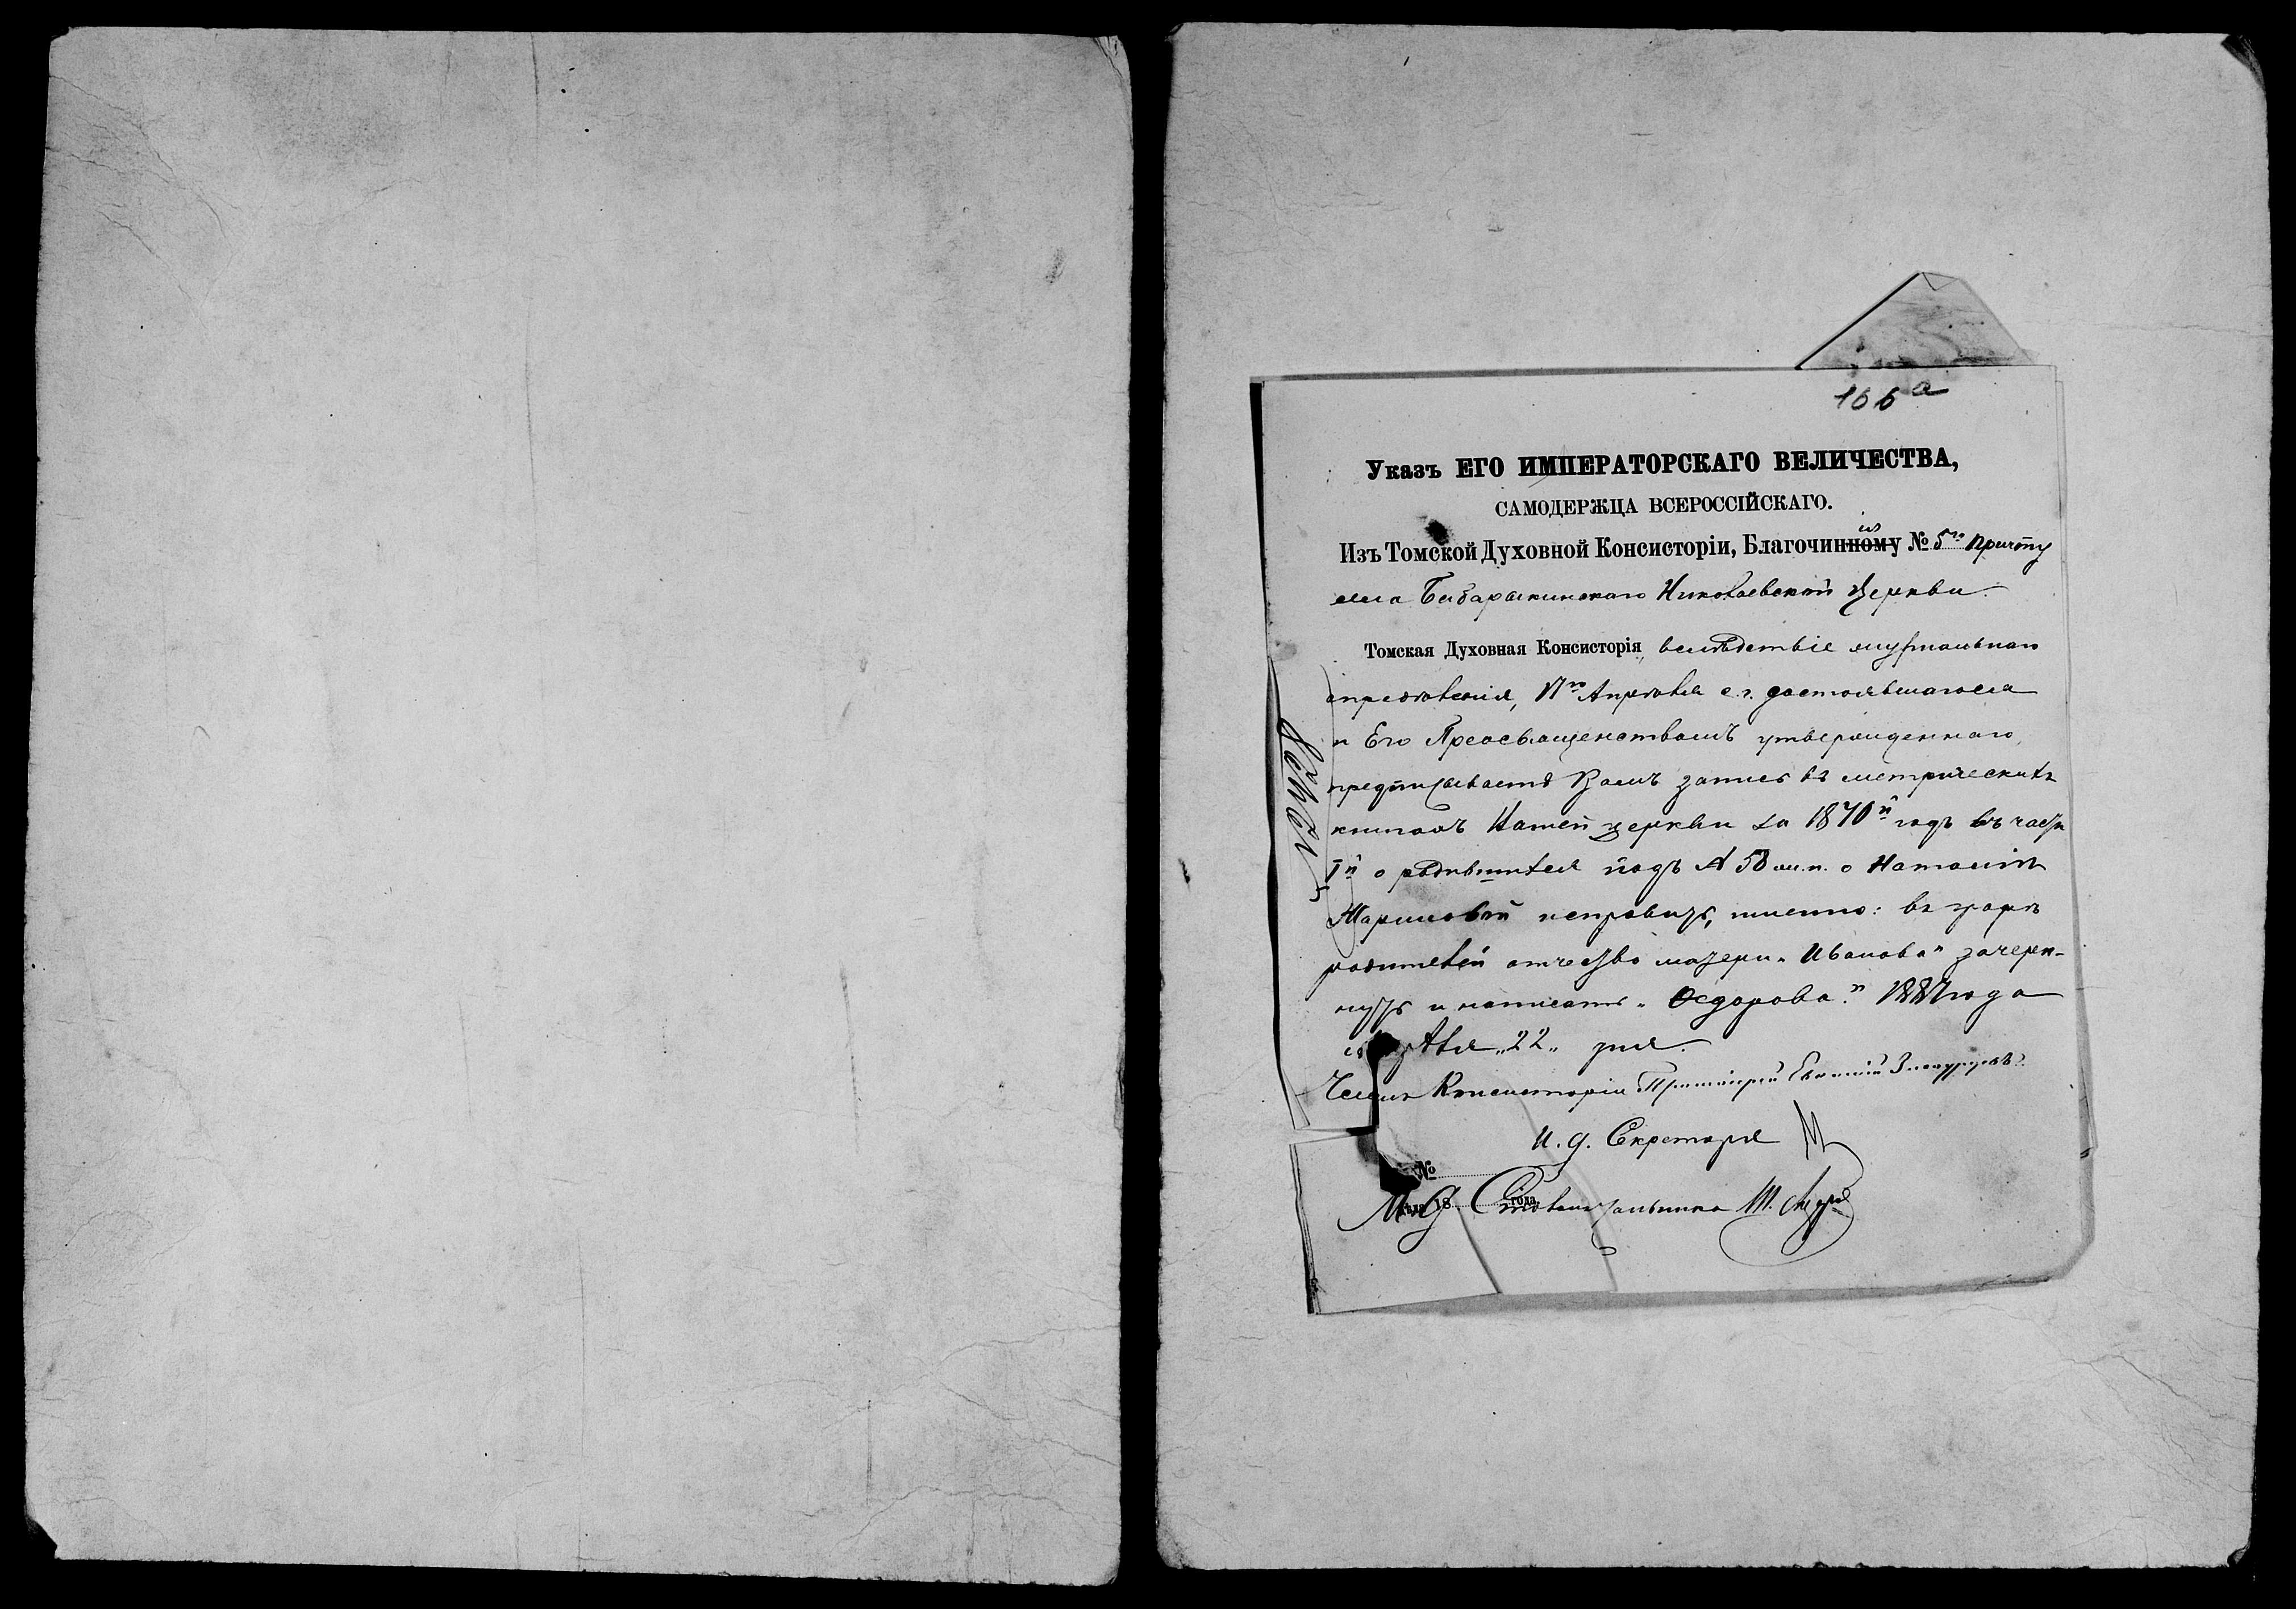 166а
Указъ ЕГО ИМПЕРАТОРСКАГО ВЕЛИЧЕСТВА,
САМОДЕРЖЦА ВСЕРОССІЙСКАГО.
Изъ Томской Духовной Консисторіи, Благочинному ія № 5го Причту
села Николаевской Церкви.
Томская Духовная Консисторія, вслѣдствіе журнальнаго
опредѣленія, 17го Апрѣля с. г. состоявшагося
и Его Преосвященствомъ утвержденнаго,
предписываетъ Вамъ запись въ метрическихъ
книгахъ Вашей церкви за 1870й годъ въ части
Iй о родившихся подъ № 58 ж. п. о Наталіи
исправить, именно: въ графѣ
родителей отчество матери „Иванова" зачерк-
нуть и написать „Ѳедорова." 1887 года
Апрѣля „22„ дня.
Членъ Консисторіи Протоіерей
И. д. Секретаря
№
И. д. Столоначальника